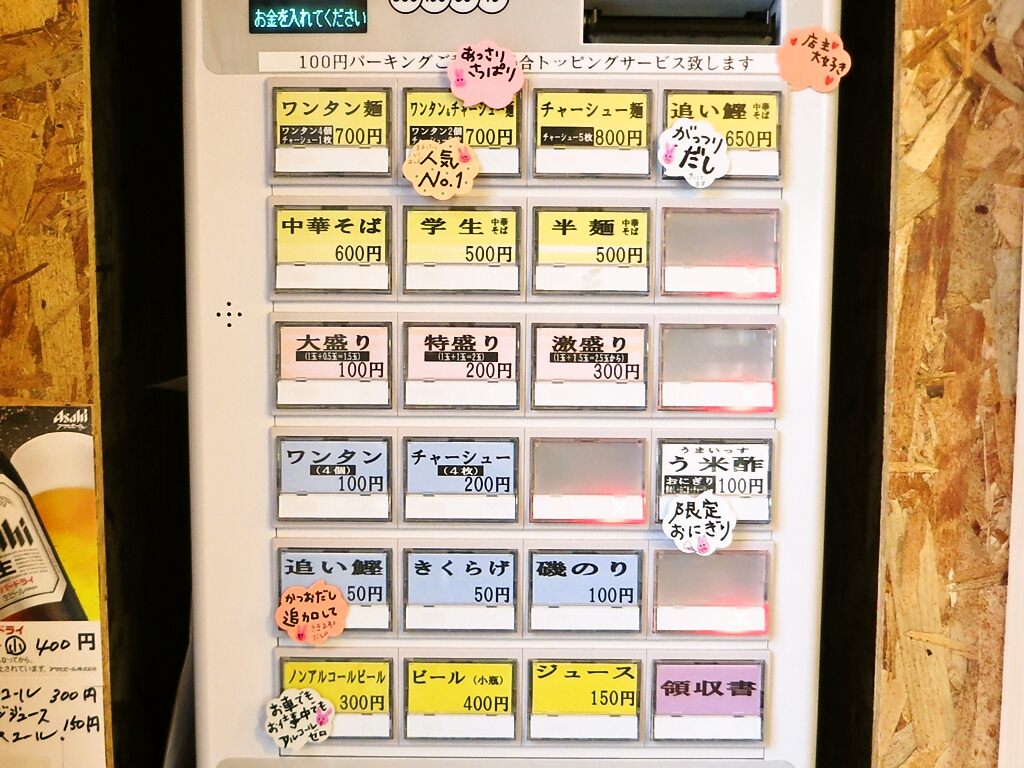 お金を入れてください
100円パーキングご
合トッピングサービス致します
あっさり
さっぱり
店主
大好き
ワンタン麺
ワンタン4個
チャーシュー1枚
700円
ワンタン&チャーシュー麺
ワンタン2個
700円
人気
No.1
チャーシュー麺
チャーシュー5枚
800円
追い鰹 中華そば
650円
がっつり
だし
中華そば
600円
学生 中華そば
500円
半麺 中華そば
500円
大盛り
(1玉+0.5玉=1.5玉)
100円
特盛り
(1玉+1玉=2玉)
200円
激盛り
(1玉+1.5玉=2.5玉から)
300円
ワンタン
(4個)
100円
チャーシュー
(4枚)
200円
うまいっす
う米酢
おにぎり
100円
限定
おにぎり
追い鰹
50円
かつおだし
追加して
きくらげ
50円
磯のり
100円
ノンアルコールビール
300円
お車でも
お仕事中でも
アルコール
ゼロ
ビール (小瓶)
400円
ジュース
150円
領収書
Asahi
アサヒビール
生
ドライ
小 400円
アサヒビール株式会社
300円
ジュース
150円